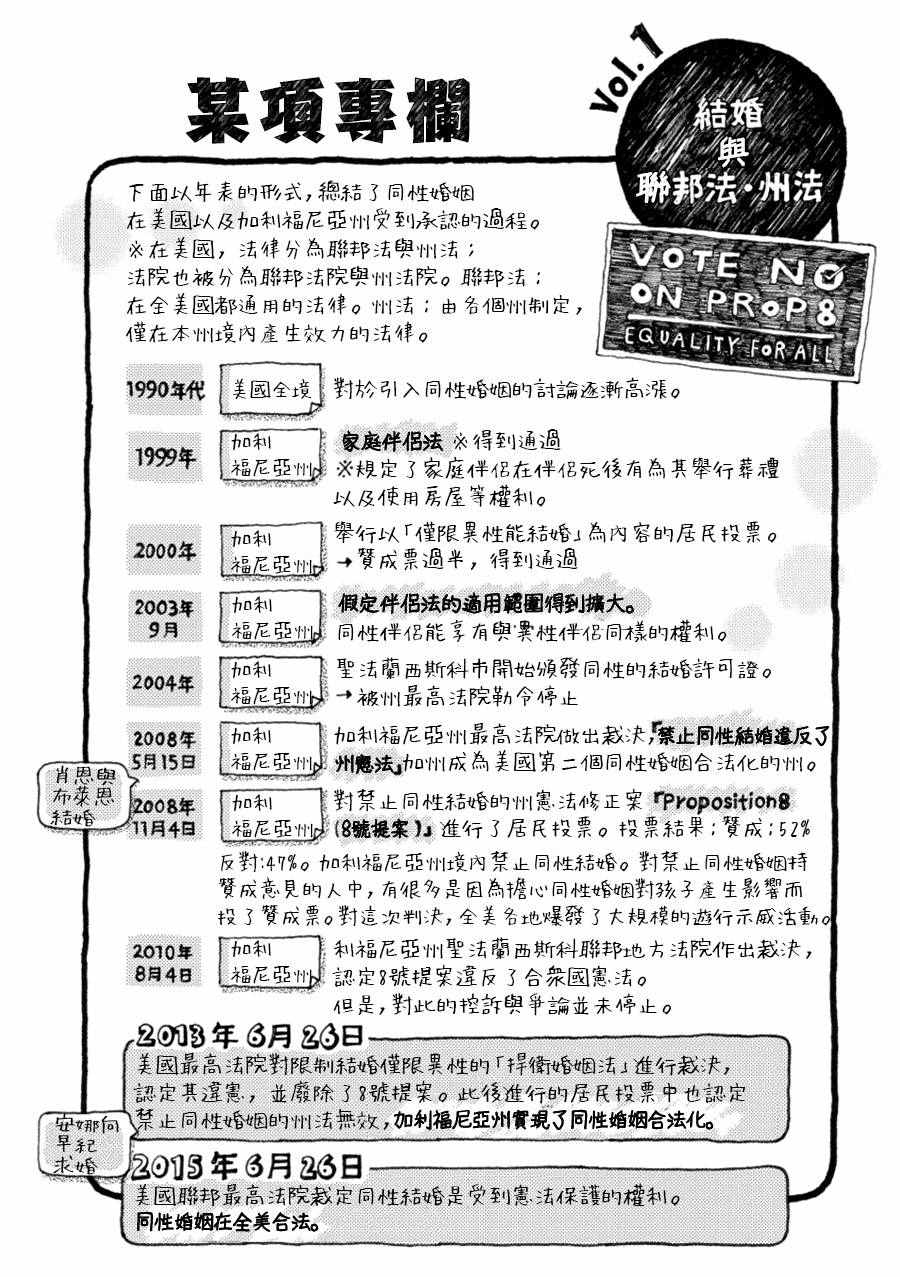 某項專欄
Vol.1
結婚
與
聯邦法·州法
VOTE NO
ON PROP8
EQUALITY FOR ALL
下面以年表的形式,總結了同性婚姻
在美國以及加利福尼亞州受到承認的過程。
※在美國,法律分為聯邦法與州法;
法院也被分為聯邦法院與州法院。聯邦法;
在全美國都通用的法律。州法;由各個州制定,
僅在本州境內產生效力的法律。
1990年代
美國全境
對於引入同性婚姻的討論逐漸高漲。
1999年
加利
福尼亞州
家庭伴侶法 ※得到通過
※規定了家庭伴侶在伴侶死後有為其舉行葬禮
以及使用房屋等權利。
2000年
加利
福尼亞州
舉行以「僅限異性能結婚」為內容的居民投票。
→贊成票過半,得到通過
2003年
9月
加利
福尼亞州
假定伴侶法的適用範圍得到擴大。
同性伴侶能享有與異性伴侶同樣的權利。
2004年
加利
福尼亞州
聖法蘭西斯科市開始頒發同性的結婚許可證。
→被州最高法院勒令停止
2008年
5月15日
加利
福尼亞州
加利福尼亞州最高法院做出裁決,『禁止同性結婚違反了
州憲法』加州成為美國第二個同性婚姻合法化的州。
肖恩與
布萊恩
結婚
2008年
11月4日
加利
福尼亞州
對禁止同性結婚的州憲法修正案『Proposition8
(8號提案)』進行了居民投票。投票結果;贊成;52%
反對:47%。加利福尼亞州境內禁止同性結婚。對禁止同性婚姻持
贊成意見的人中,有很多是因為擔心同性婚姻對孩子產生影響而
投了贊成票。對這次判決,全美各地爆發了大規模的遊行示威活動。
2010年
8月4日
加利
福尼亞州
利福尼亞州聖法蘭西斯科聯邦地方法院作出裁決,
認定8號提案違反了合衆國憲法。
但是,對此的控訴與爭論並未停止。
2013年6月26日
美國最高法院對限制結婚僅限異性的「捍衛婚姻法」進行裁決,
認定其違憲,並廢除了8號提案。此後進行的居民投票中也認定
禁止同性婚姻的州法無效,加利福尼亞州實現了同性婚姻合法化。
安娜向
早紀
求婚
2015年6月26日
美國聯邦最高法院裁定同性結婚是受到憲法保護的權利。
同性婚姻在全美合法。